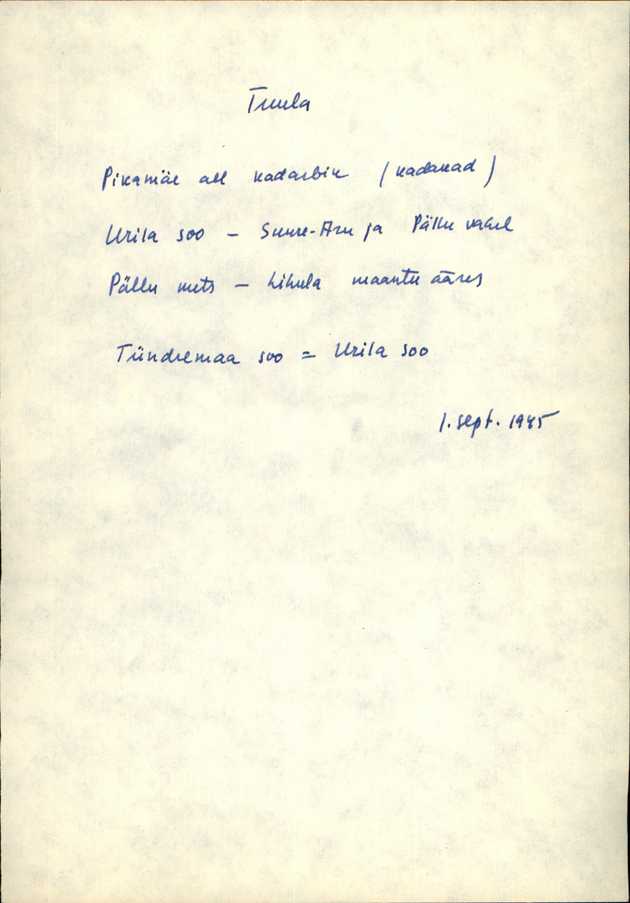 Tuula
Pikamäe all kadarbik (kadakad)
Urila soo – Suure-Aru ja Pällu vahel
Pällu mets – Lihula maantee ääres
Tündremaa soo = Urila soo
1. sept. 1985